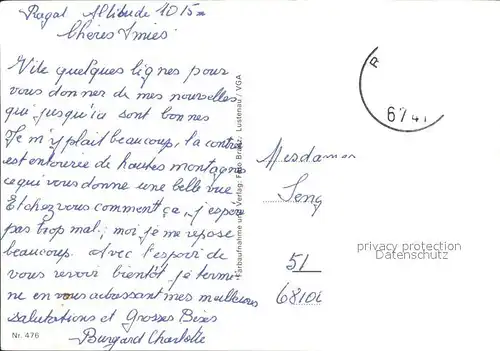 Ragal Altitude 1015m
Chères Amies
Vite quelques lignes pour
vous donner de mes nouvelles
qui jusqu'ici sont bonnes
Je m'y plait beaucoup, la contrée
est entourée de hautes montagnes
ce qui vous donne une belle vue
Et chez vous comment ça, j'espère
pas trop mal; moi je me repose
beaucoup. Avec l'espoir de
vous revoir bientôt je termi
ne en vous embrassant mes meilleures
salutations et Grosses Bises
Burgard Charlotte
Nr. 476
Farbaufnahme und Verlag: Foto Lustenau / VGA
6741
Mesdames
Seng
51
6810
privacy protection
Datenschutz